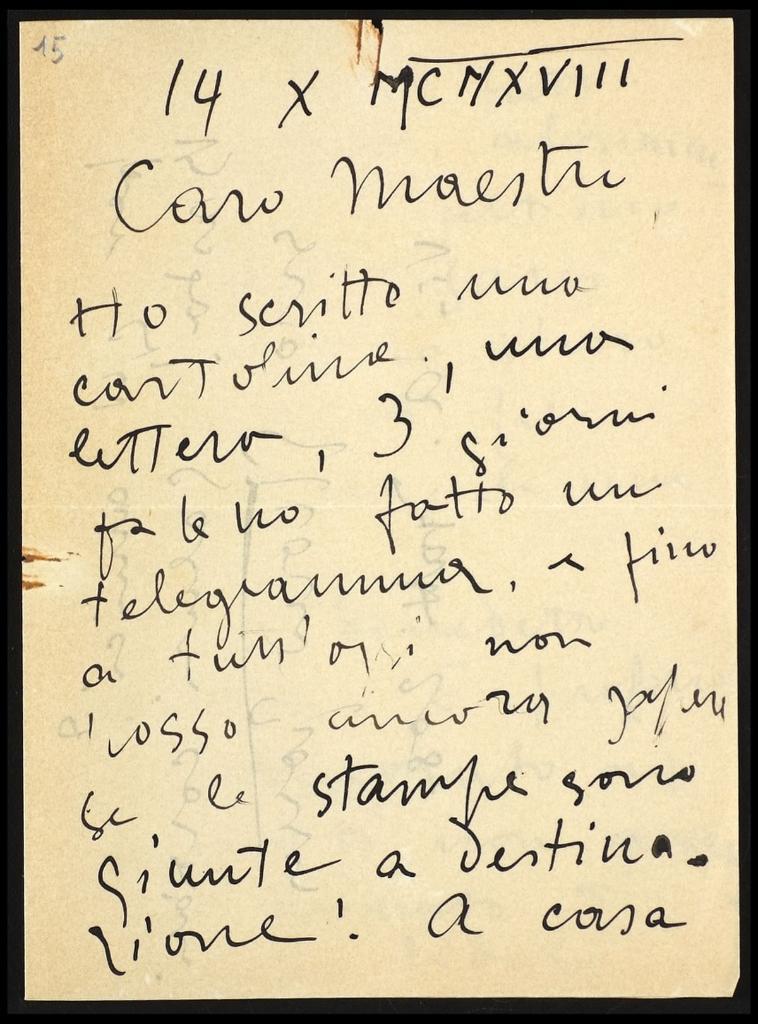 15
14 X MCMXVIII
Caro Maestro
Ho scritto una
cartolina, una
lettera, 3 giorni
fa le ho fatto un
telegramma, e fino
a tutt'oggi non
posso ancora sapere
se le stampe sono
giunte a destina-
zione! A casa